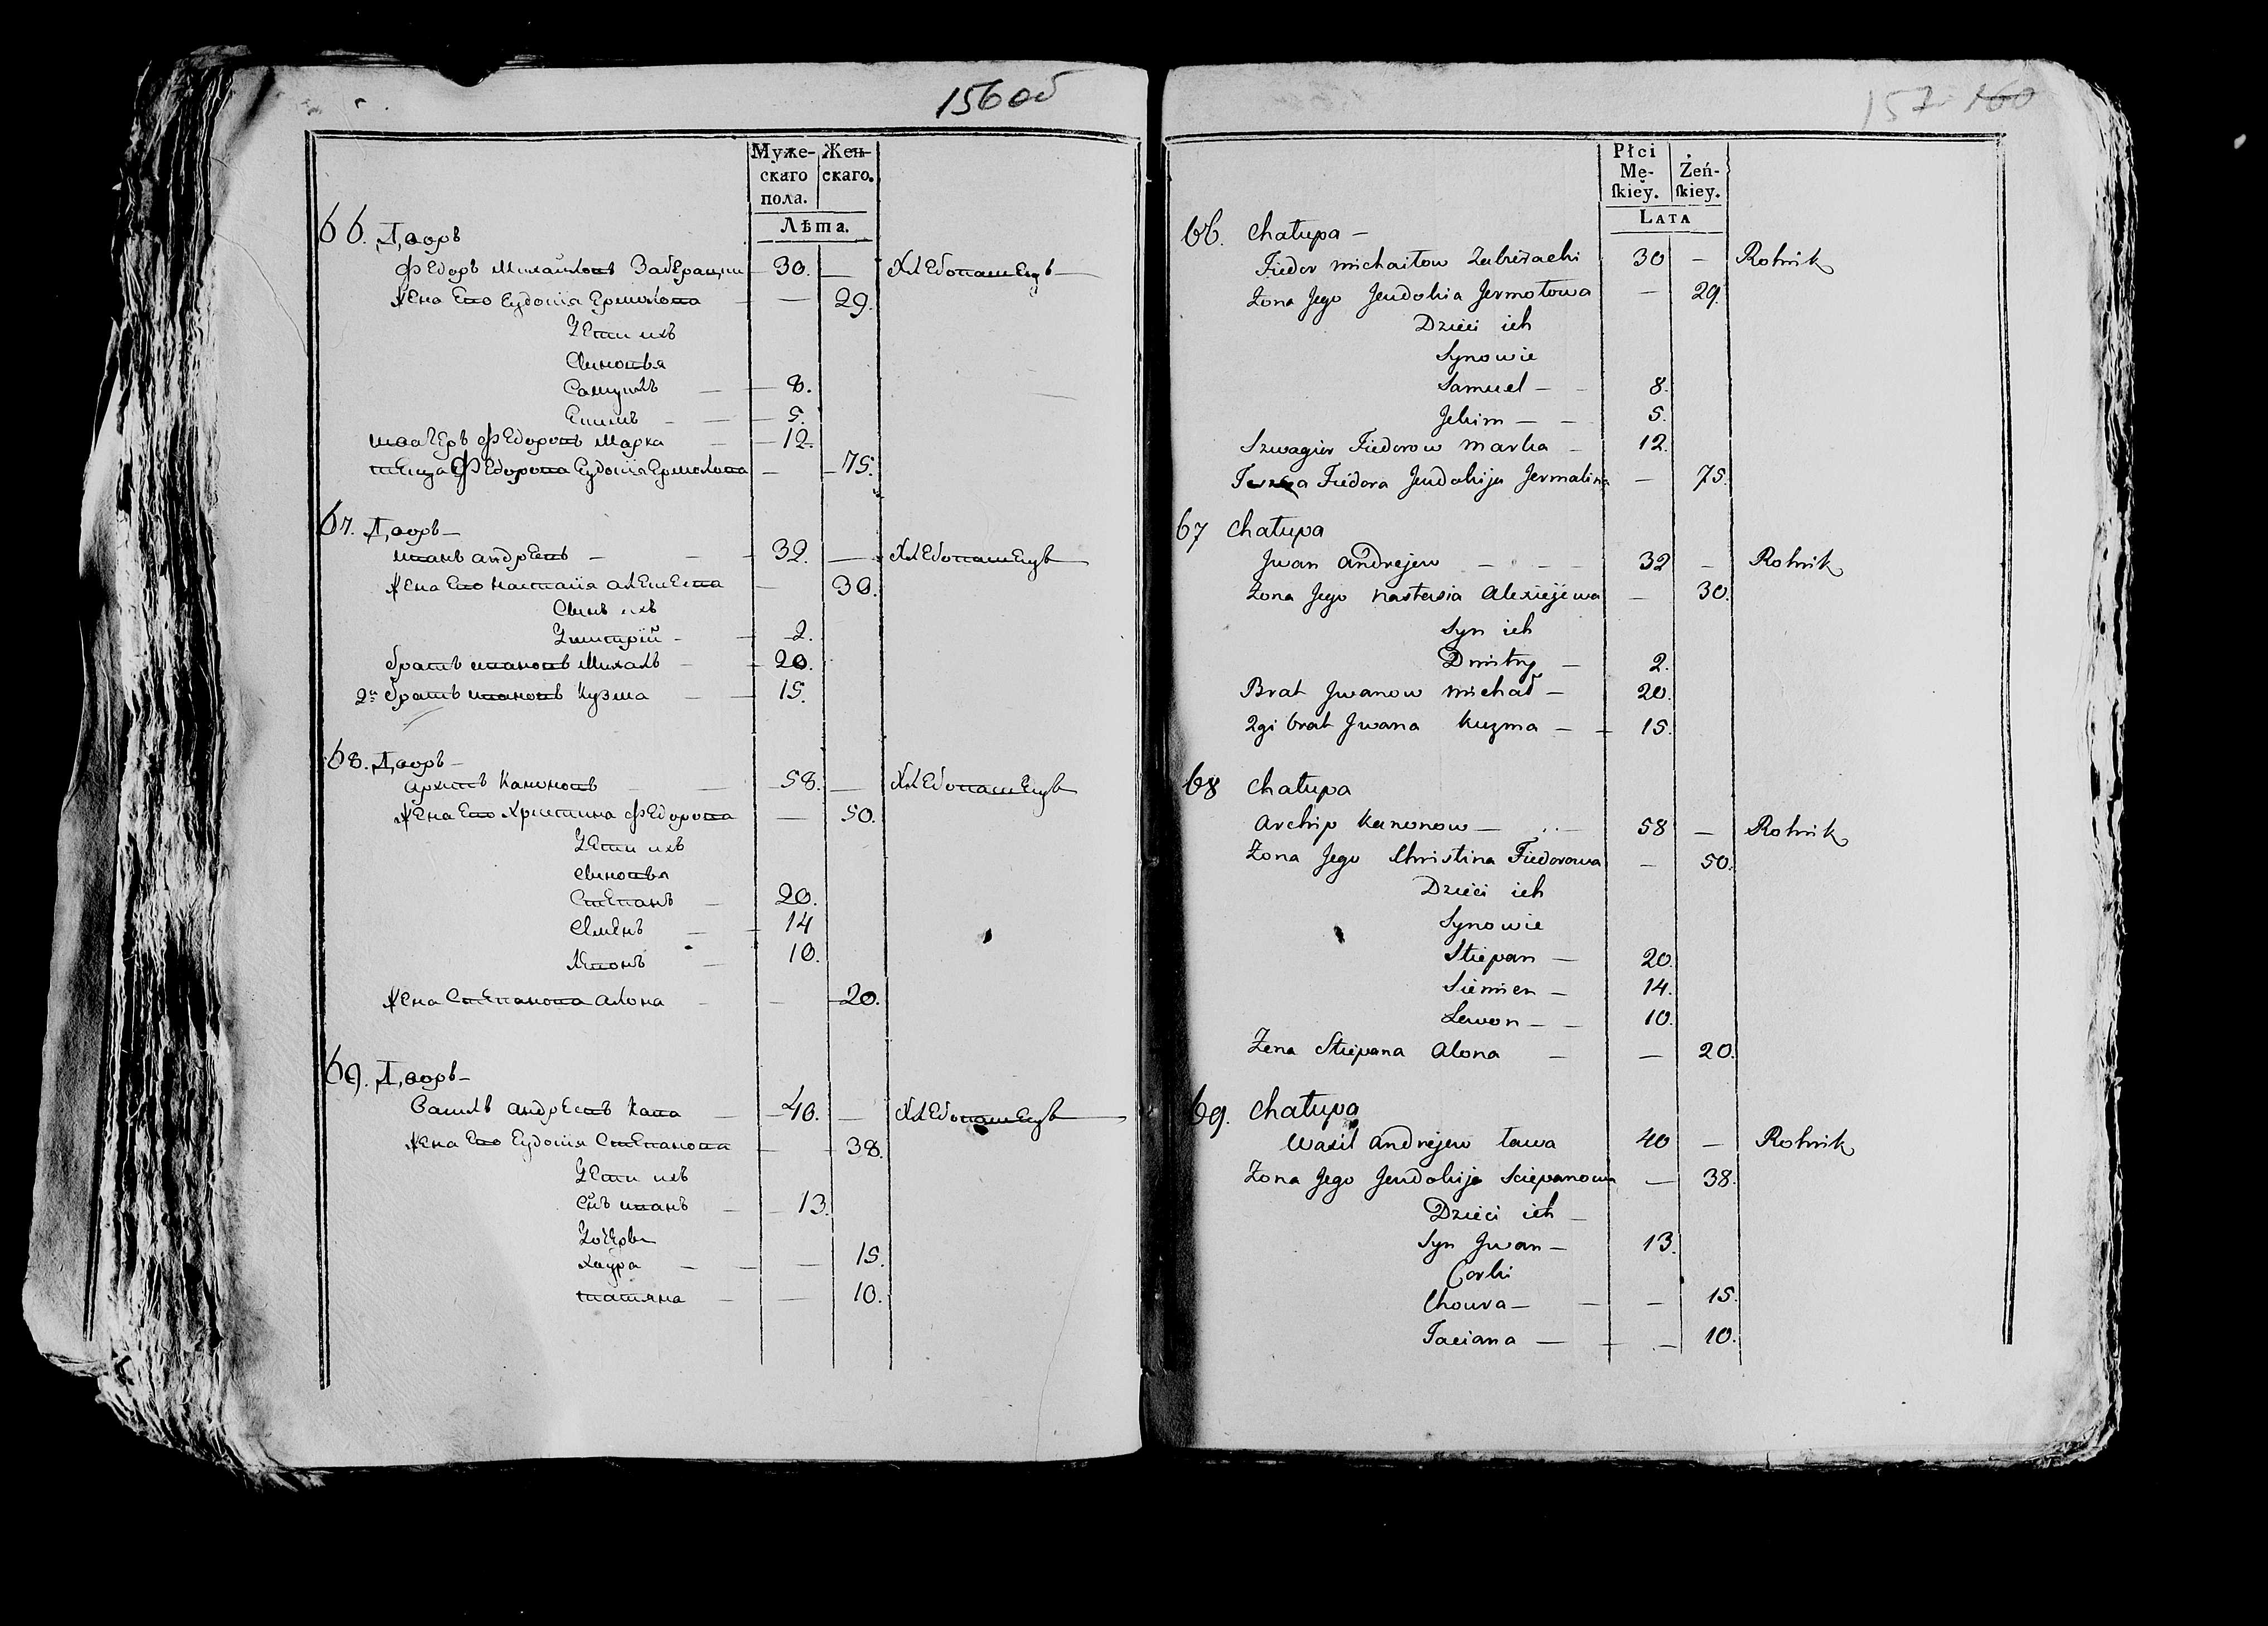 156 об
Муже-
скаго
пола.
Жен-
скаго.
Лѣта.
66. Дворъ
Федоръ Михайловъ 30. —
Хлебопашецъ
Жена Ево Еудокія Ермолова — — 29.
Дети ихъ
Синовья
Самуилъ — — 8.
Екимъ — — 5.
Швагеръ Федоровъ Марка — — 12.
тіоща Федорова Еудокія Ермолова — — 75.
67. Дворъ —
Иванъ Андреевъ — — 32. — Хлебопашецъ
Жена Ево Настасія Алексеева — 30.
Синъ ихъ
Дмитрій — — 2.
братъ Ивановъ Михалъ — — 20.
2й братъ Ивановъ Кузма — — 15.
68. Дворъ —
Архипъ Кононовъ — — 58. — Хлебопашецъ
Жена Ево Христина Федорова — 50.
Дети ихъ
Синовья
Степанъ — 20.
Семенъ — — 14
Левонъ — 10.
Жена Степанова Алона — — 20.
69. Дворъ —
Василь Андреевъ — 40. — Хлебопашецъ
Жена Ево Еудокія Степанова — 38.
Дети ихъ
Снъ Иванъ — 13.
Дочеры
Хоура — — — 15.
Татяна — — 10.
157 160
Płci
Mę-
skiey.
Żeń-
skiey.
LATA
66. Chałupa —
Fiedor Michaiłow 30 — Rolnik
Żona Jego Jeudokia Jermołowa — 29.
Dzieci ich
Synowie
Samuel — — 8.
Jekim — — 5.
Szwagier Fiedorow Marka — 12.
Fiedora Jeudokija — 75.
67 Chałupa
Jwan Andrejew — — — 32 — Rolnik
Żona Jego Nastasia Alexiejewa — 30.
Syn ich
Dmitry — 2.
Brat Jwanow Michał — 20.
2gi brat Jwana Kuzma — — 15.
68 Chałupa
Archip Kononow — 58 — Rolnik
Żona Jego Christina Fiedorowa — 50.
Dzieci ich
Synowie
Stiepan — 20.
Siemien — 14.
Lewon — — 10.
Żena Stiepana Alona — — 20.
69. Chałupa
Wasil Andrejew Ława 40 — Rolnik
Żona Jego Jeudokija Sciepanowa — 38.
Dzieci ich —
Syn Jwan — 13.
Corki
Choura — — — 15.
Taciana — — — 10.